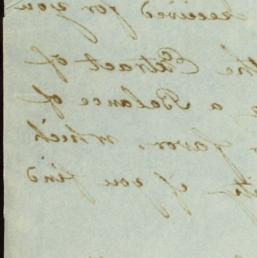 received for you
the Extract of
a Balance of
favor, which
if you find